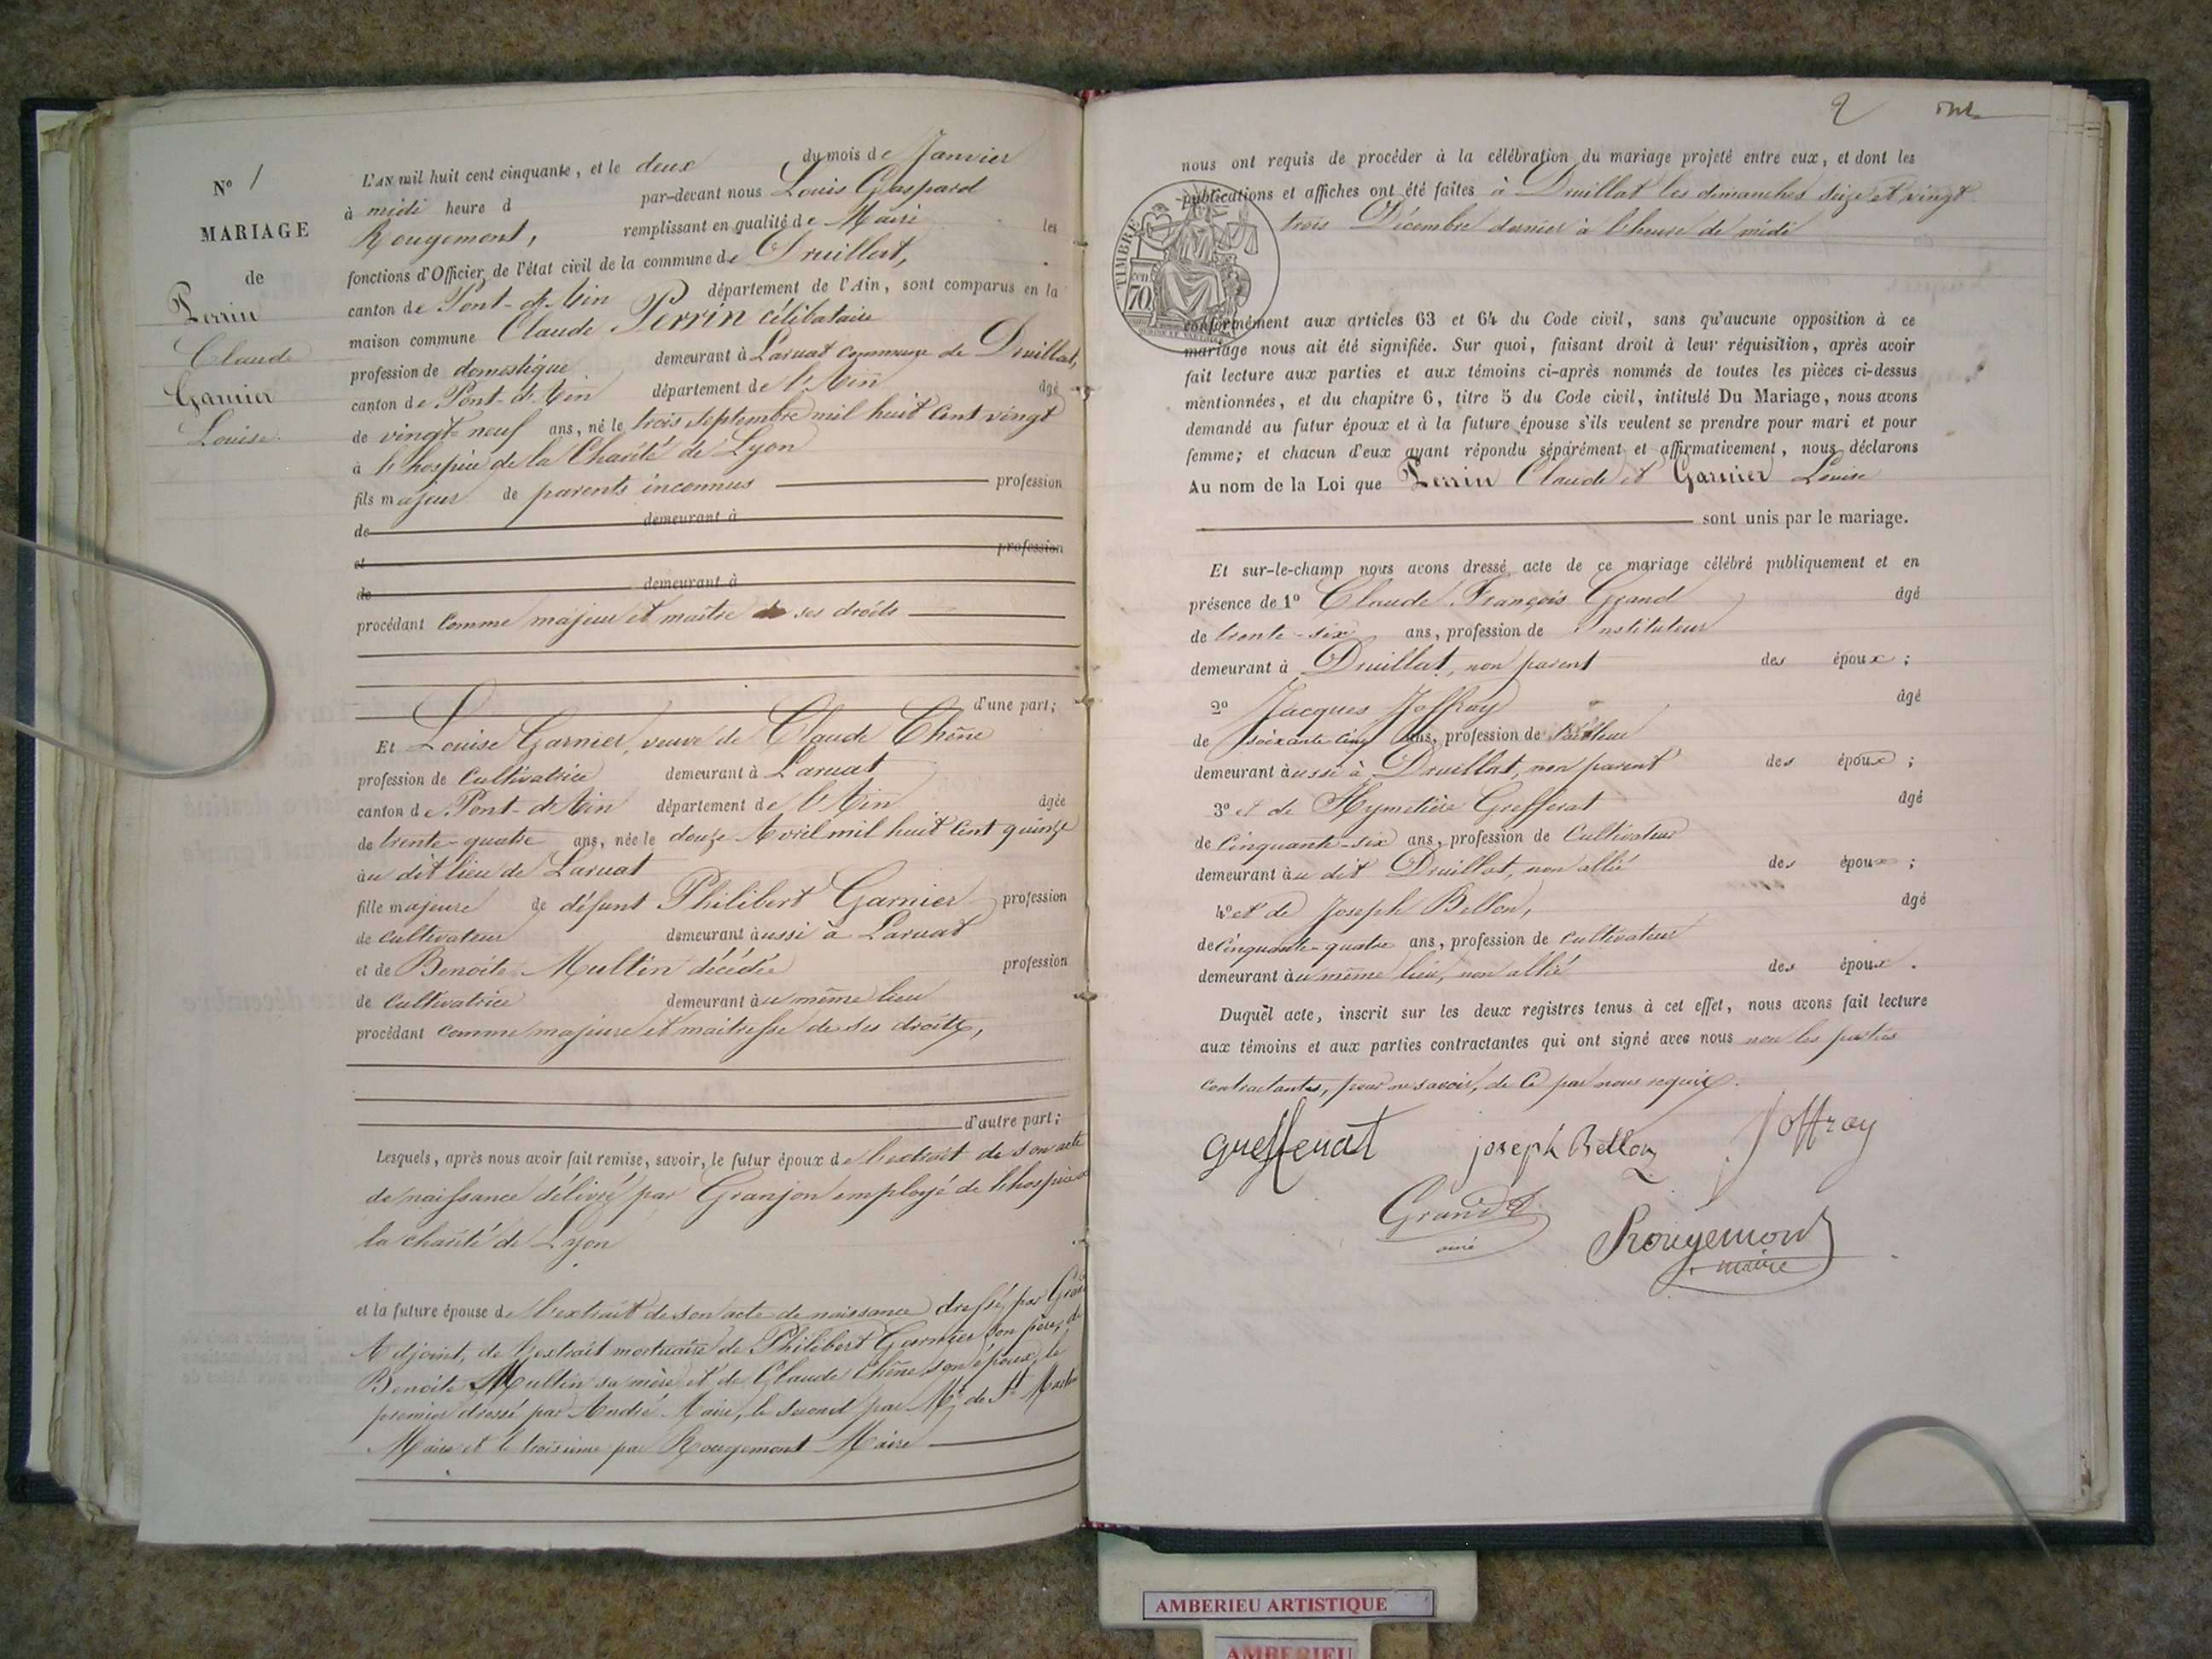 N° 1
MARIAGE
de
Perrin
Claude
Garnier
Louise.
L'AN mil huit cent cinquante, et le deux du mois de Janvier
à midi heure d par-devant nous Louis Gaspard
Rougemont, remplissant en qualité de Maire les
fonctions d'Officier de l'état civil de la commune de Druillat,
canton de Pont-d'Ain département de l'Ain, sont comparus en la
maison commune Claude Perrin célibataire
profession de domestique demeurant à Laruat commune de Druillat,
canton de Pont-d'Ain département de l'Ain âgé
de vingt-neuf ans, né le trois septembre mil huit cent vingt
à l'hospice de la Charité de Lyon
fils majeur de parents inconnus profession
de demeurant à
et profession
de demeurant à
procédant comme majeur et maître de ses droits
d'une part;
Et Louise Garnier, veuve de Claude Chêne
profession de cultivatrice demeurant à Laruat
canton de Pont-d'Ain département de l'Ain âgée
de trente-quatre ans, née le douze Avril mil huit cent quinze
au dit lieu de Laruat
fille majeure de défunt Philibert Garnier profession
de cultivateur demeurant aussi à Laruat
et de Benoite Multin décédée profession
de cultivatrice demeurant au même lieu
procédant comme majeure et maitresse de ses droits,
d'autre part;
Lesquels, après nous avoir fait remise, savoir, le futur époux de l'extrait de son acte
de naissance délivré par Granjon employé de l'hospice de
la charité de Lyon
et la future épouse de l'extrait de son acte de naissance dressé par
Adjoint, de l'extrait mortuaire de Philibert Garnier son père, de
Benoite Multin sa mère et de Claude Chêne son époux, le
premier dressé par André Maire, le second par Mr de St Martin
Maire et le troisième par Rougemont Maire
2
nous ont requis de procéder à la célébration du mariage projeté entre eux, et dont les
publications et affiches ont été faites à Druillat les dimanches seize et vingt
trois Décembre dernier à l'heure de midi
TIMBRE
70
conformément aux articles 63 et 64 du Code civil, sans qu'aucune opposition à ce
mariage nous ait été signifiée. Sur quoi, faisant droit à leur réquisition, après avoir
fait lecture aux parties et aux témoins ci-après nommés de toutes les pièces ci-dessus
mentionnées, et du chapitre 6, titre 5 du Code civil, intitulé Du Mariage, nous avons
demandé au futur époux et à la future épouse s'ils veulent se prendre pour mari et pour
femme; et chacun d'eux ayant répondu séparément et affirmativement, nous déclarons
Au nom de la Loi que Perrin Claude et Garnier Louise
sont unis par le mariage.
Et sur-le-champ nous avons dressé acte de ce mariage célébré publiquement et en
présence de 1° Claude François Grand âgé
de trente-six ans, profession de Instituteur
demeurant à Druillat, non parent des époux;
2° Jacques Joffray âgé
de soixante cinq ans, profession de
demeurant aussi à Druillat, non parent des époux;
3° et de Hymetière Greffenat âgé
de cinquante-six ans, profession de cultivateur
demeurant au dit Druillat, non allié des époux;
4° et de Joseph Bellon, âgé
de cinquante-quatre ans, profession de cultivateur
demeurant au même lieu, non allié des époux.
Duquel acte, inscrit sur les deux registres tenus à cet effet, nous avons fait lecture
aux témoins et aux parties contractantes qui ont signé avec nous non les parties
contractantes, pour ne savoir, de ce par nous requis.
Greffenat joseph Bellon Joffray
Grand
ainé
Rougemont
maire
AMBERIEU ARTISTIQUE
AMBERIEU